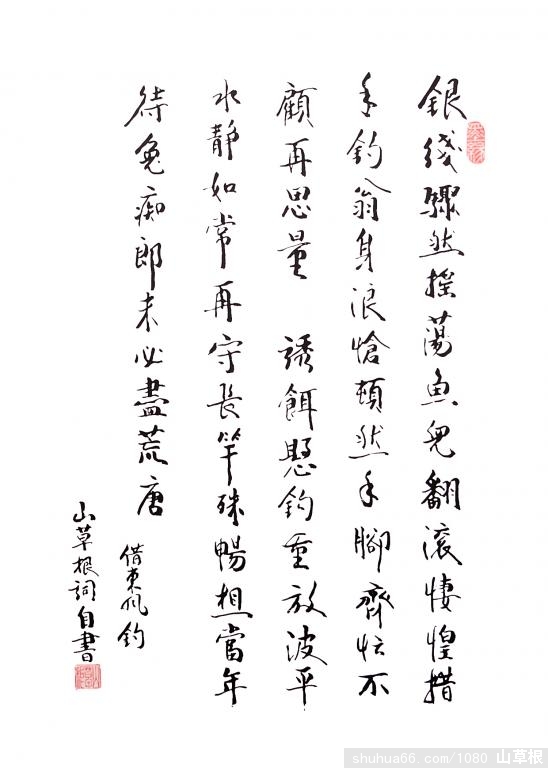 銀綫驟然摇蕩魚兒翻滚悽惶措
手釣翁身浪愴頓然手腳齊忙不
顧再思量 誘餌懸釣重放波平
水靜如常再守長竿殊暢想當年
待兔痴郎未必盡荒唐
借東風 釣
山草根詞自書
shuhua66.com/1080 山草根